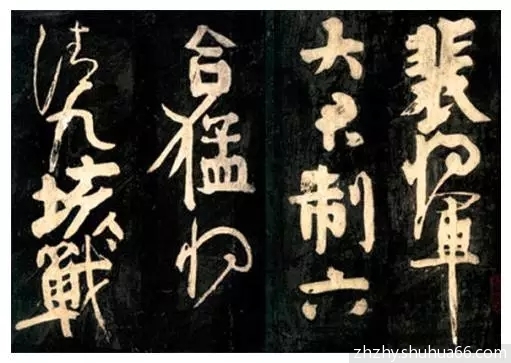 裴將軍
大君制六
合猛將
清九垓戰
zhzhyshuhua66.com